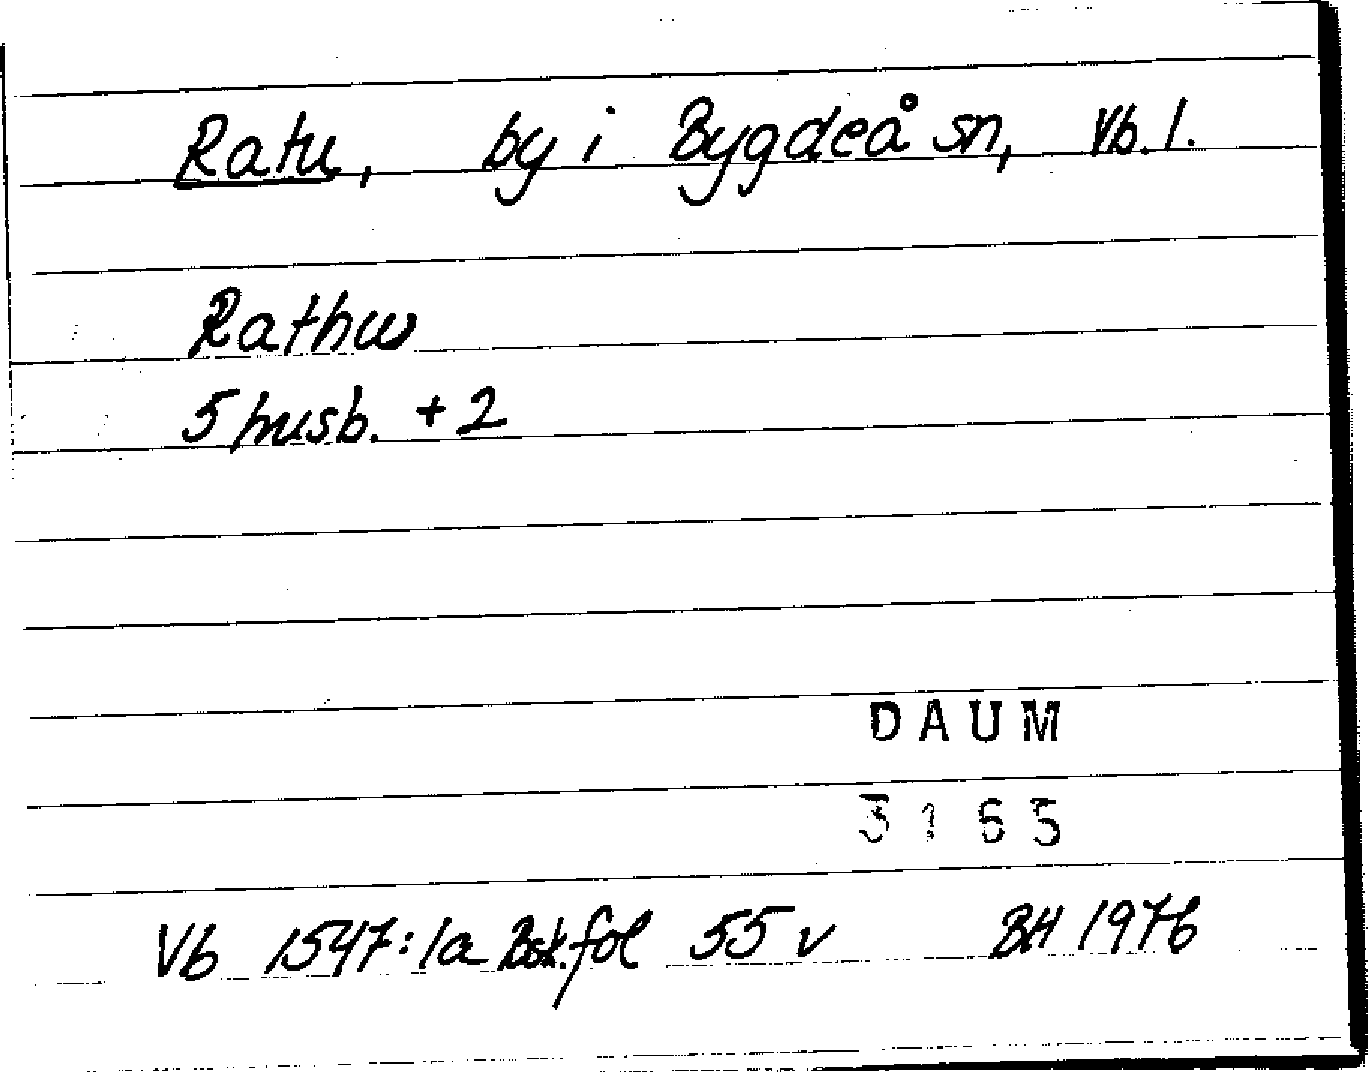 Ratu, by i Bygdeå sn, Vb. l.
Rathw
5 husb. + 2
DAUM
3165
Vb 1547:1a Bsk. fol 55 v BH 1976